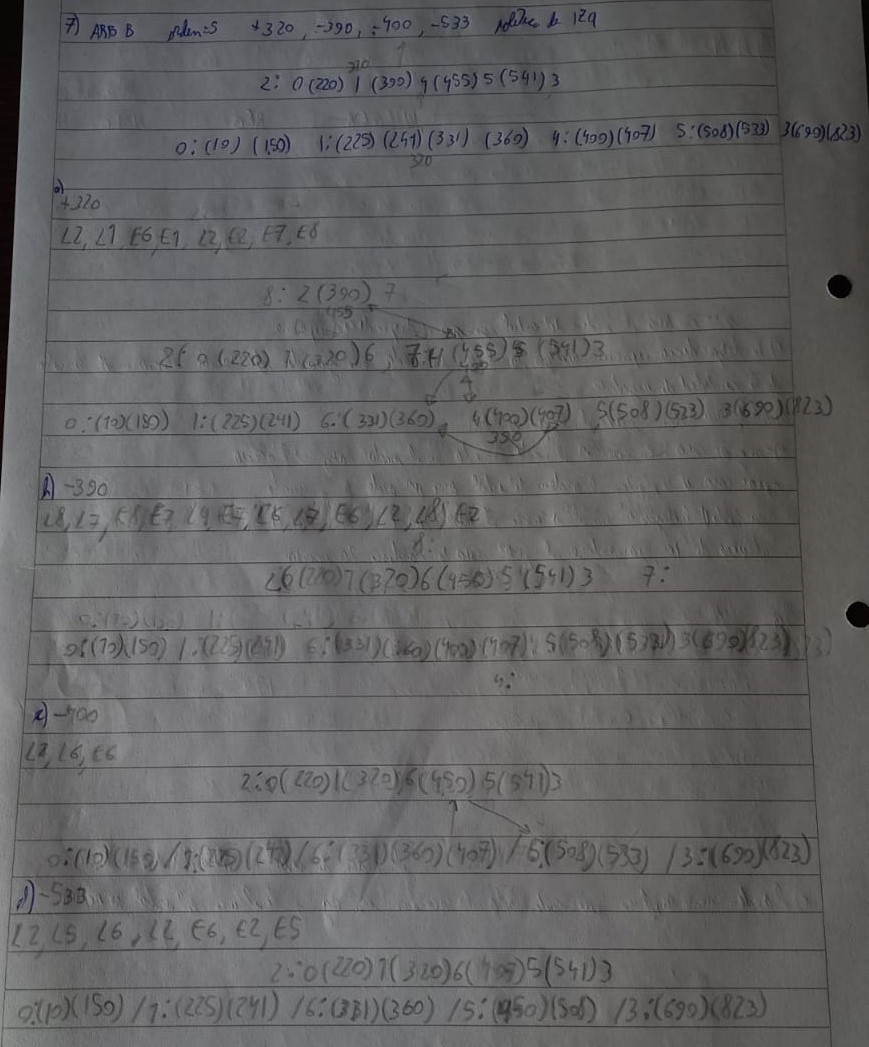 7) ARB B orden=5 +320, -390, -400, -533 política de izq
320
2: 0(220) 1 (390) 4(455) 5(541) 3
0:(10) (150) 1:(225) (241) (331) (360) 4:(400)(407) 5:(508)(533) 3(690)(823)
320
a)
+320
L2, L1, E6, E1, L2, E2, E7, E8
8: 2(390) 7
455
2: 0 (220) 1 (320) 6, 7:4 (455) 5 (541) 3
4
0:(10)(150) 1:(225)(241) 6:(331)(360) 4(400)(407) 5(508)(523) 3(690)(823)
b) -390
8:
6(220)1(320)6(450)5(541)3 7:
0:(10)(150) 1:(225)(241) 6:(331)(360)(400)(407) 5(508)(533) 3(690)(823)
4:
c) -400
L2, L6, E6
2:0(220)1(320)6(450)5(541)3
0:(10)(150) / 1:(225)(241) / 6:(331)(360)(407) / 5:(508)(533) / 3:(690)(823)
d) -533
L2, L5, L6, L2, E6, E2, E5
2:0(220)1(320)6(407)5(541)3
0:(10)(150) / 1:(225)(241) / 6:(331)(360) / 5:(450)(508) / 3:(690)(823)